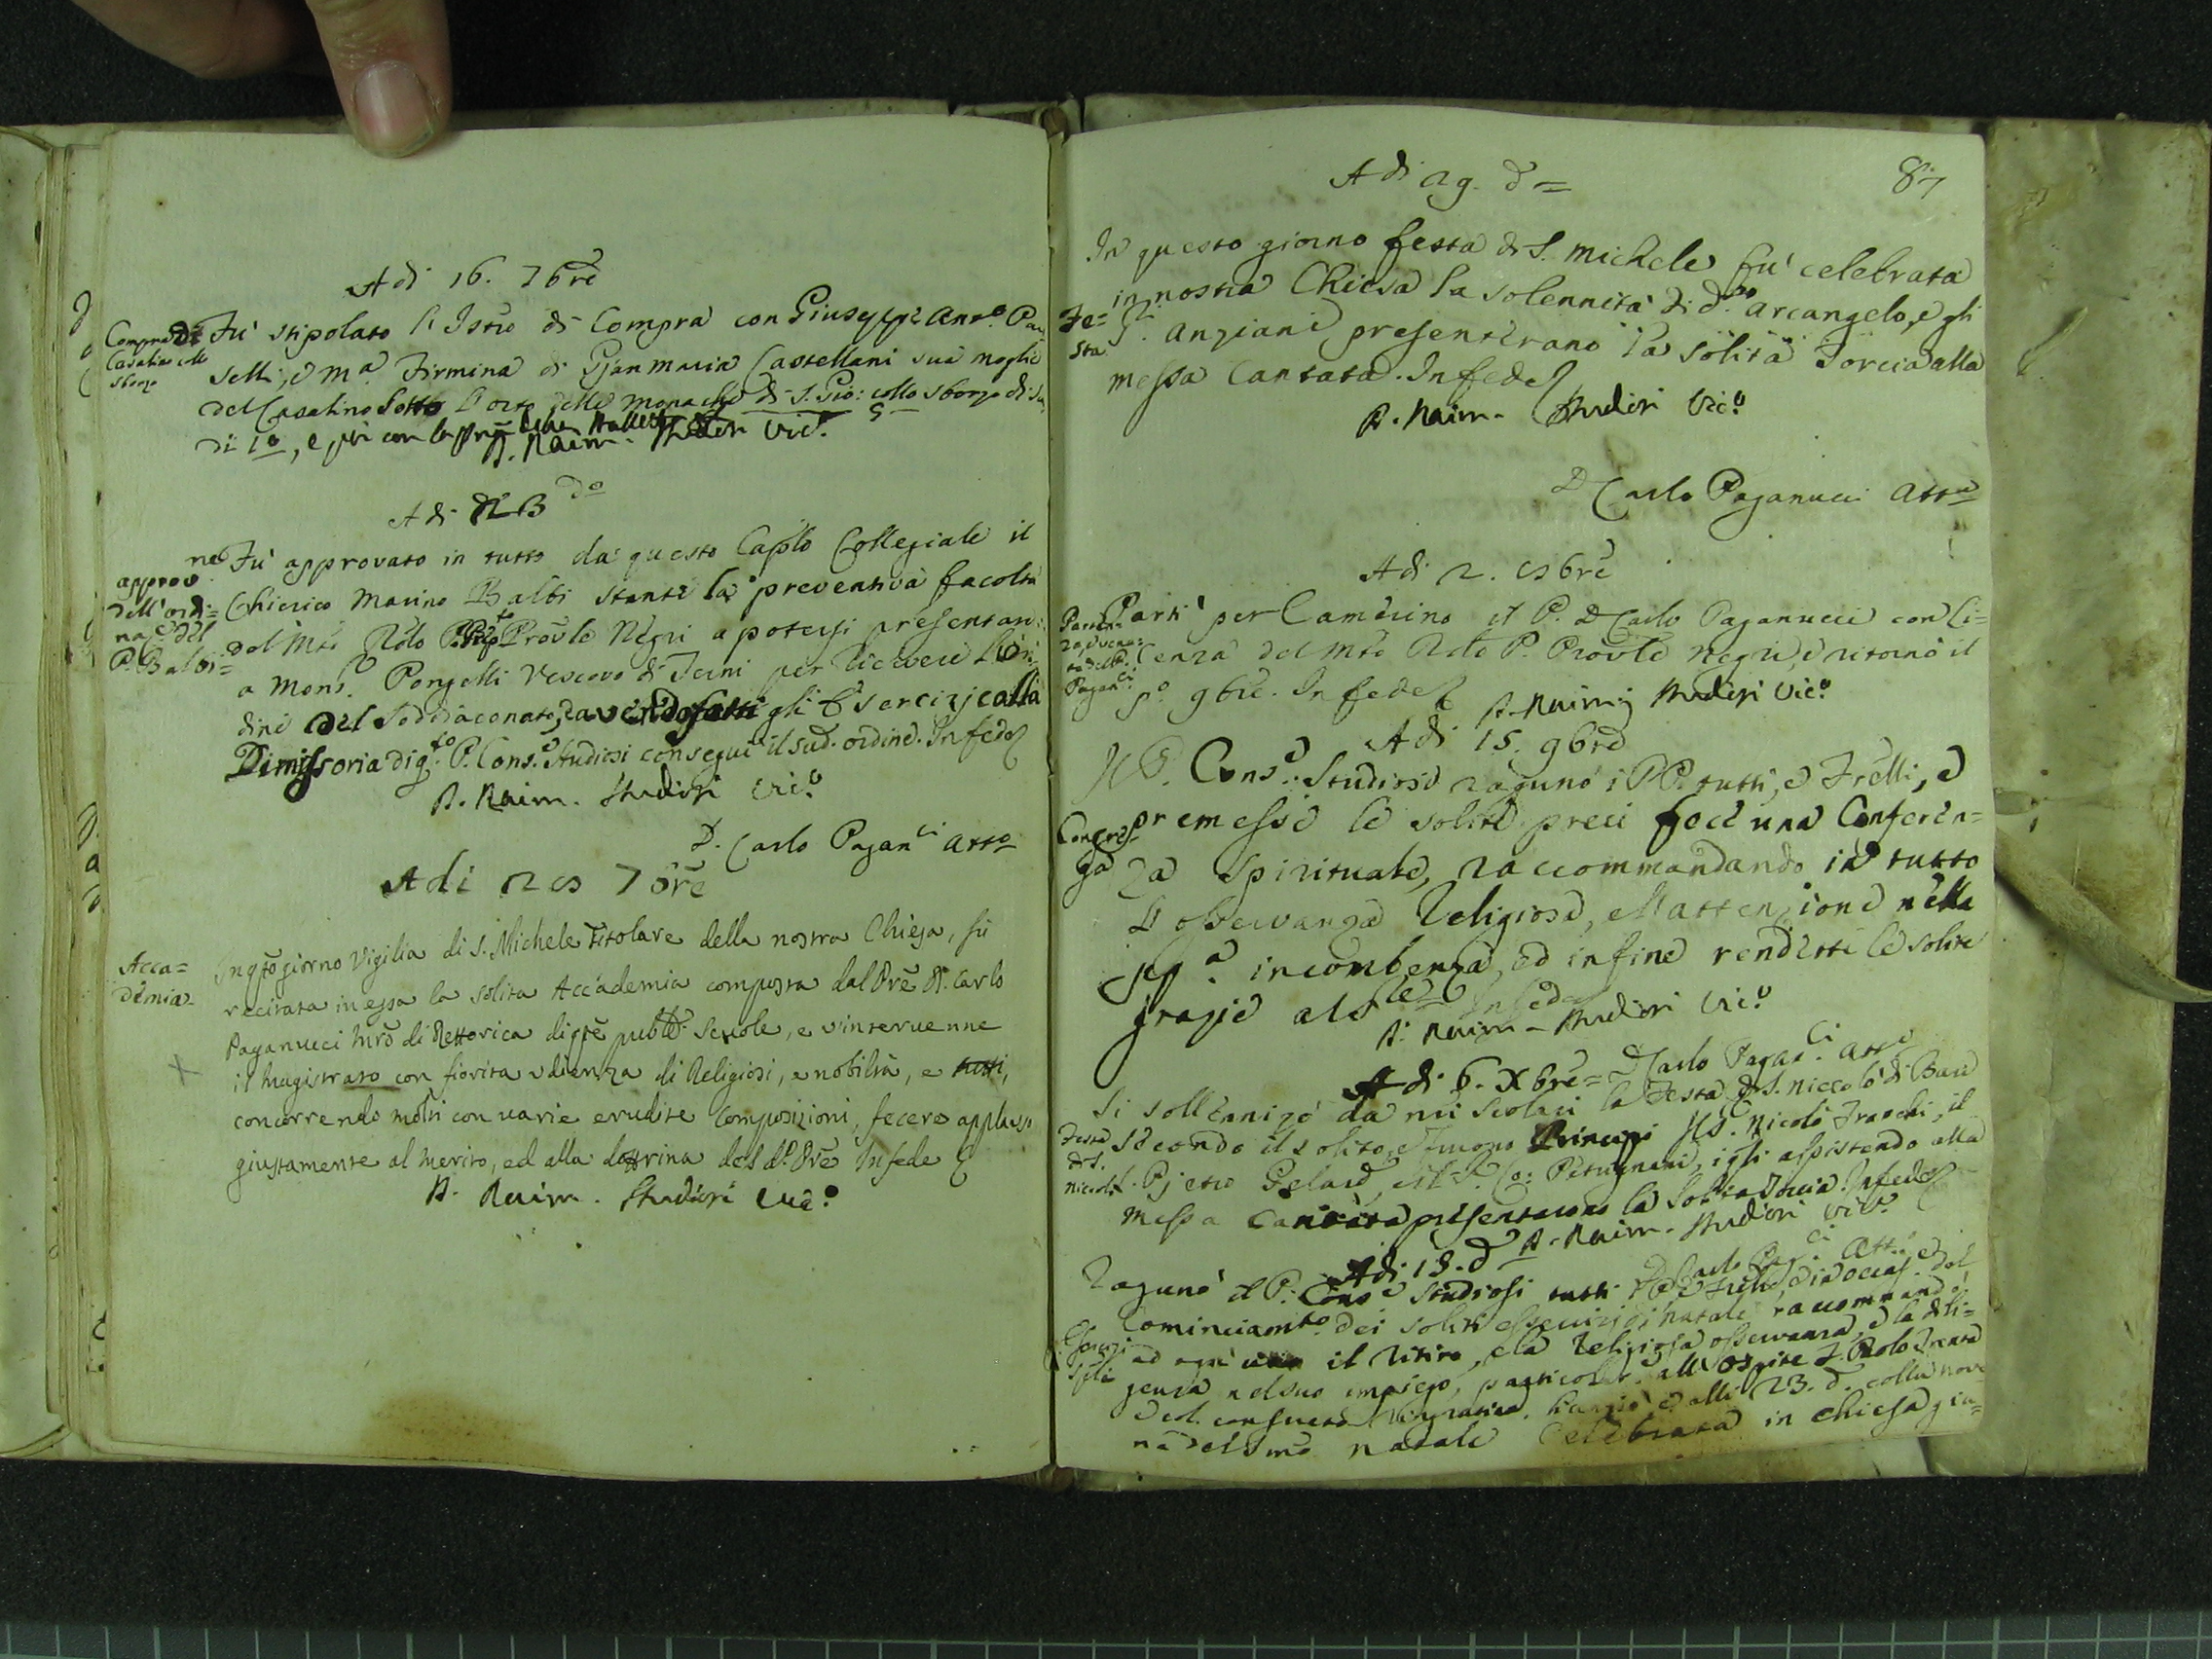 Adi 16. 7bre
Compra di
Casalino collo
sborzo
Fù stipolato l'Istro di Compra con Giuseppe Anto. Pa
selli, e Ma. Firmina di Gjanmaria Castellani sua moglie
del Casalino sotto l'orto delle monache di S. Gio: collo sborzo di
di 10, e più con la
D. Raim. Studiosi Vico.
Adi 23 do
approvne
dell'ordi=
naze del
P. Balbi=
Fù approvato in tutto da questo Caplo Collegiale il
Chierico Marino Balbi stante la preventiva facoltà
del Mto Rdo P. Proule Negri a potersi presentare
a Mons. Pongelli Vescovo di Terni per ricevere l'or
dine del Soddiaconato, ed avendo fatti gli Esercizj colla
Dimissoria di qto P. Conse. Studiosi conseguì il sud. ordine. In fede
D. Raim. Studiosi Vico.
D. Carlo Paganci Atto
Adi 28 7bre
Acca=
demia-
In qsto giorno Vigilia di S. Michele Titolare della nostra Chiesa, fù
recitata in essa la solita Accademia composta dal Pre D. Carlo
Paganucci Mro di Rettorica di qste pubbe. Scuole, e v'intervenne
il Magistrato con fiorita udienza di Religiosi, e nobiltà, e tutti,
concorrendo molti con varie erudite Composizioni, fecero applauso
giustamente al merito, ed alla dottrina del do. Pre In fede
D. Raim. Studiosi Vico.
87
Adi 29. d=
Fe=
sta
In questo giorno festa di S. Michele fù celebrata
in nostra Chiesa la solennità di do. Arcangelo, e gli
S.ri Anziani presentarono la solita Torcia alla
messa Cantata. In fede
D. Raim. Studiosi Vico.
D Carlo Paganucci Atto
Adi 2. 8bre
Parten=
za, e veno=
ta del P.
Paganci.
Partì per Camerino il P. D Carlo Paganucci con li=
cenza del Mto Rdo P. Proule Negri, e ritornò il
po. 9bre. In fede
D. Raim. Studiosi Vico.
Adi 15. 9bre
Congre=
ga
Il P. Conse. Studiosi ragunò i PP. tutti, e Frelli, e
premesse le solite preci fece una Conferen=
za spirituale, raccommandando in tutto
l'osservanza Religiosa, e l'attenzione nella
ppa. incombenza, ed infine rendette le solite
grazie al S In fede
D. Raim. Studiosi Vico.
Adi 6. Xbre= D Carlo Paganci. Atto
Festa
di S.
Nicolò
Si sollennizò da nri Scolari la Festa di S. Niccolò di Bari
secondo il solito, e furono Principi Il S. Nicolò Franchi, il
S. Pjetro Gelasi, e il S. Co: Petrignani, i qli assistendo alla
messa Cantata presentarono la solita Torcia. In fede
D. Raim. Studiosi Vico.
Adi 15. d D Carlo Pagci Atto
Esercizi
Spli
Ragunò il P. Conse Studiosi tutti i PP. e Frelli, e in occase. del
Cominciamto. dei soliti essercizi di natale raccommandò
ad ogni uno il ritiro, e la Religiosa osservanza, e la dili=
genza nel suo impiego, particolar. all'Ospite F. Paolo
e col consueto e alli 23. d. colla nove
na del Smo Natale Celebrata in Chiesa